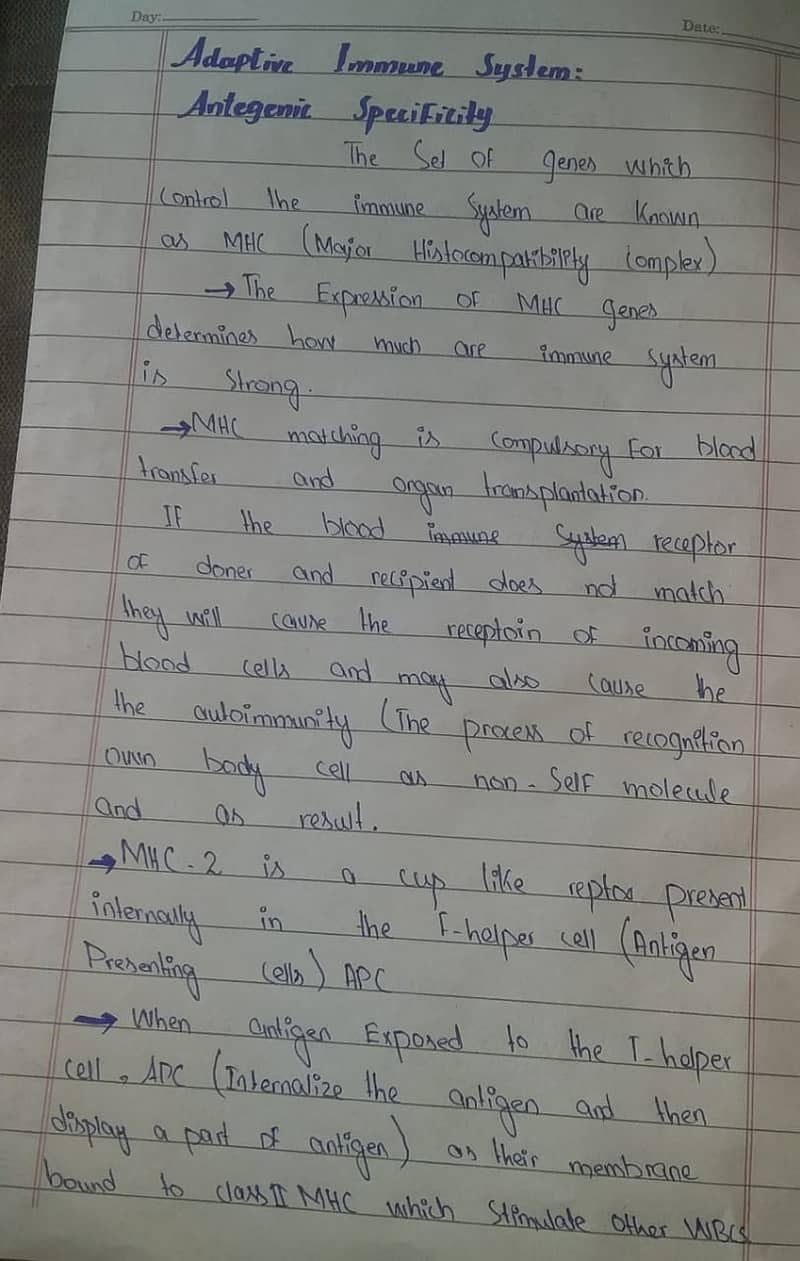 Day:
Date:
Adaptive Immune System:
Antegenic Specificity
The Set of genes which
control the immune System are Known
as MHC (Major Histocompatibility Complex)
→ The Expression of MHC genes
determines how much are immune system
is strong.
→ MHC matching is compulsory For blood
transfer and organ transplantation.
IF the blood immune System receptor
of doner and recipient does not match
they will cause the receptoin of incoming
blood cells and may also cause the
the autoimmunity (The process of recognition
own body cell as non-Self molecule
and as result.
→ MHC-2 is a cup like reptos present
internally in the T-helper cell (Antigen
Presenting Cells) APC
→ When antigen Exposed to the T-helper
cell, APC (Internalize the antigen and then
display a part of antigen) as their membrane
bound to class II MHC which Stimulate Other WBCs